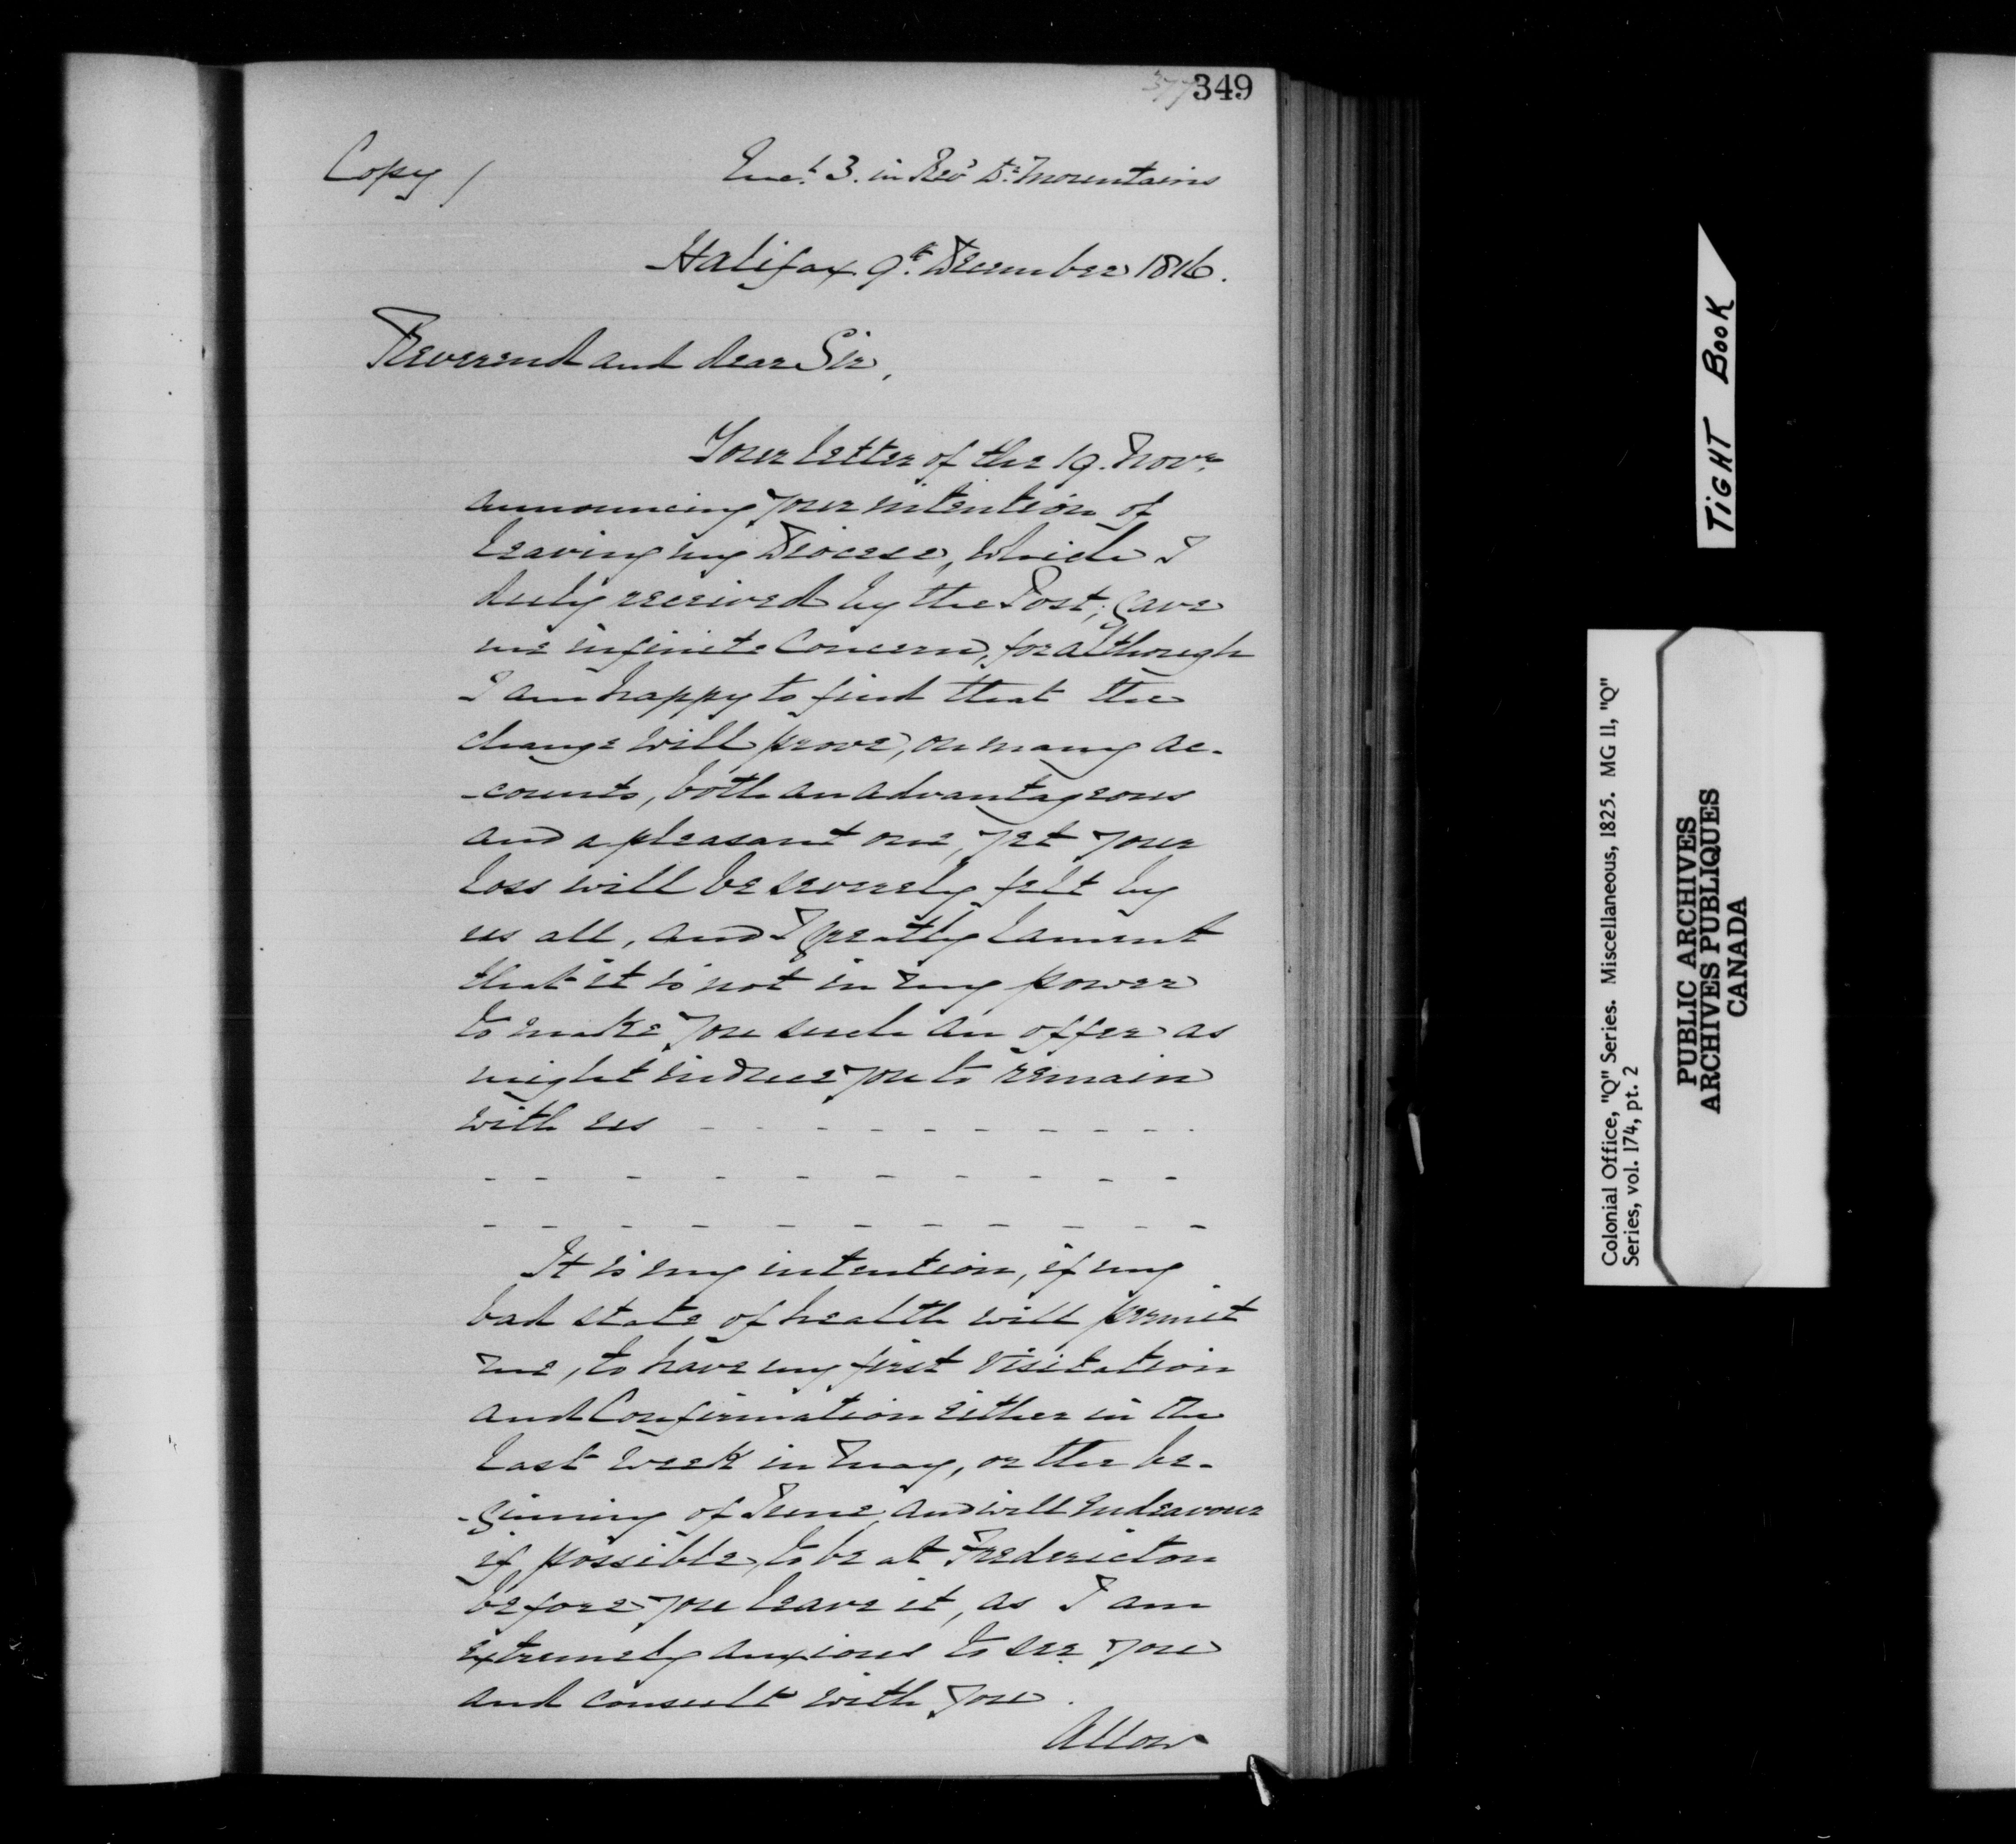 377 349
Copy /
Encl. 3. in Revd Dr. Mountains
Halifax 9th December 1816.
Reverend and dear Sir,
Your letter of the 19. Novr.
announcing your intention of
leaving my Diocese, which I
duly received by the Post, gave
me infinite concern, for although
I am happy to find that the
change will prove, on many ac-
-counts, both an advantageous
and a pleasant one, yet your
loss will be severely felt by
us all, and I greatly lament
that it is not in my power
to make you such an offer as
might induce you to remain
with us - - - - - - - - - - -
- - - - - - - - - - -
- - - - - - - - - - -
It is my intention, if my
bad state of health will permit
me, to have my first Visitation
and Confirmation either in the
last week in May, or the be-
-ginning of June, and will endeavour
if possible, to be at Fredericton
before you leave it, as I am
extremely anxious to see you
and consult with you.
Allow
TIGHT BOOK
Colonial Office, "Q" Series. Miscellaneous, 1825. MG 11, "Q"
Series, vol. 174, pt. 2
PUBLIC ARCHIVES
ARCHIVES PUBLIQUES
CANADA